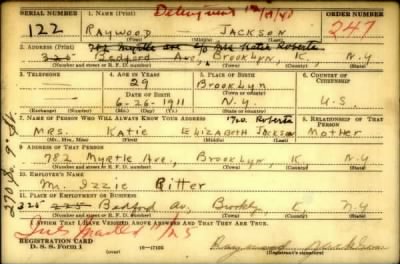 SERIAL NUMBER 1. NAME (Print) Delinquent ORDER NUMBER
122 RAYWOOD JACKSON 247
(First) (Middle) (Last)
2. ADDRESS (Print)
782 Myrtle Ave c/o Mrs Katie Roberts
325 Bedford Av, BROOKLYN, K, N.Y
(Number and street or R. F. D. number) (Town) (County) (State)
3. TELEPHONE 4. AGE IN YEARS 5. PLACE OF BIRTH 6. COUNTRY OF CITIZENSHIP
29 BROOKLYN
DATE OF BIRTH
6-26-1911 N.Y. U.S.
(Exchange) (Number) (Mo.) (Day) (Yr.) (Town or county) (State or country)
7. NAME OF PERSON WHO WILL ALWAYS KNOW YOUR ADDRESS 8. RELATIONSHIP OF THAT PERSON
Roberts
MRS. KATIE ELIZABETH JACKSON MOTHER
(Mr., Mrs., Miss) (First) (Middle) (Last)
9. ADDRESS OF THAT PERSON
782 MYRTLE AVE., BROOKLYN K. N.Y
(Number and street or R. F. D. number) (Town) (County) (State)
10. EMPLOYER'S NAME
Mr. Izzie Ritter
11. PLACE OF EMPLOYMENT OR BUSINESS
325 225 Bedford Av, Brookly, K, N.Y
(Number and street or R. F. D. number) (Town) (County) (State)
I AFFIRM THAT I HAVE VERIFIED ABOVE ANSWERS AND THAT THEY ARE TRUE.
REGISTRATION CARD
D. S. S. Form 1 (over) 16-17105 (Registrant's signature)